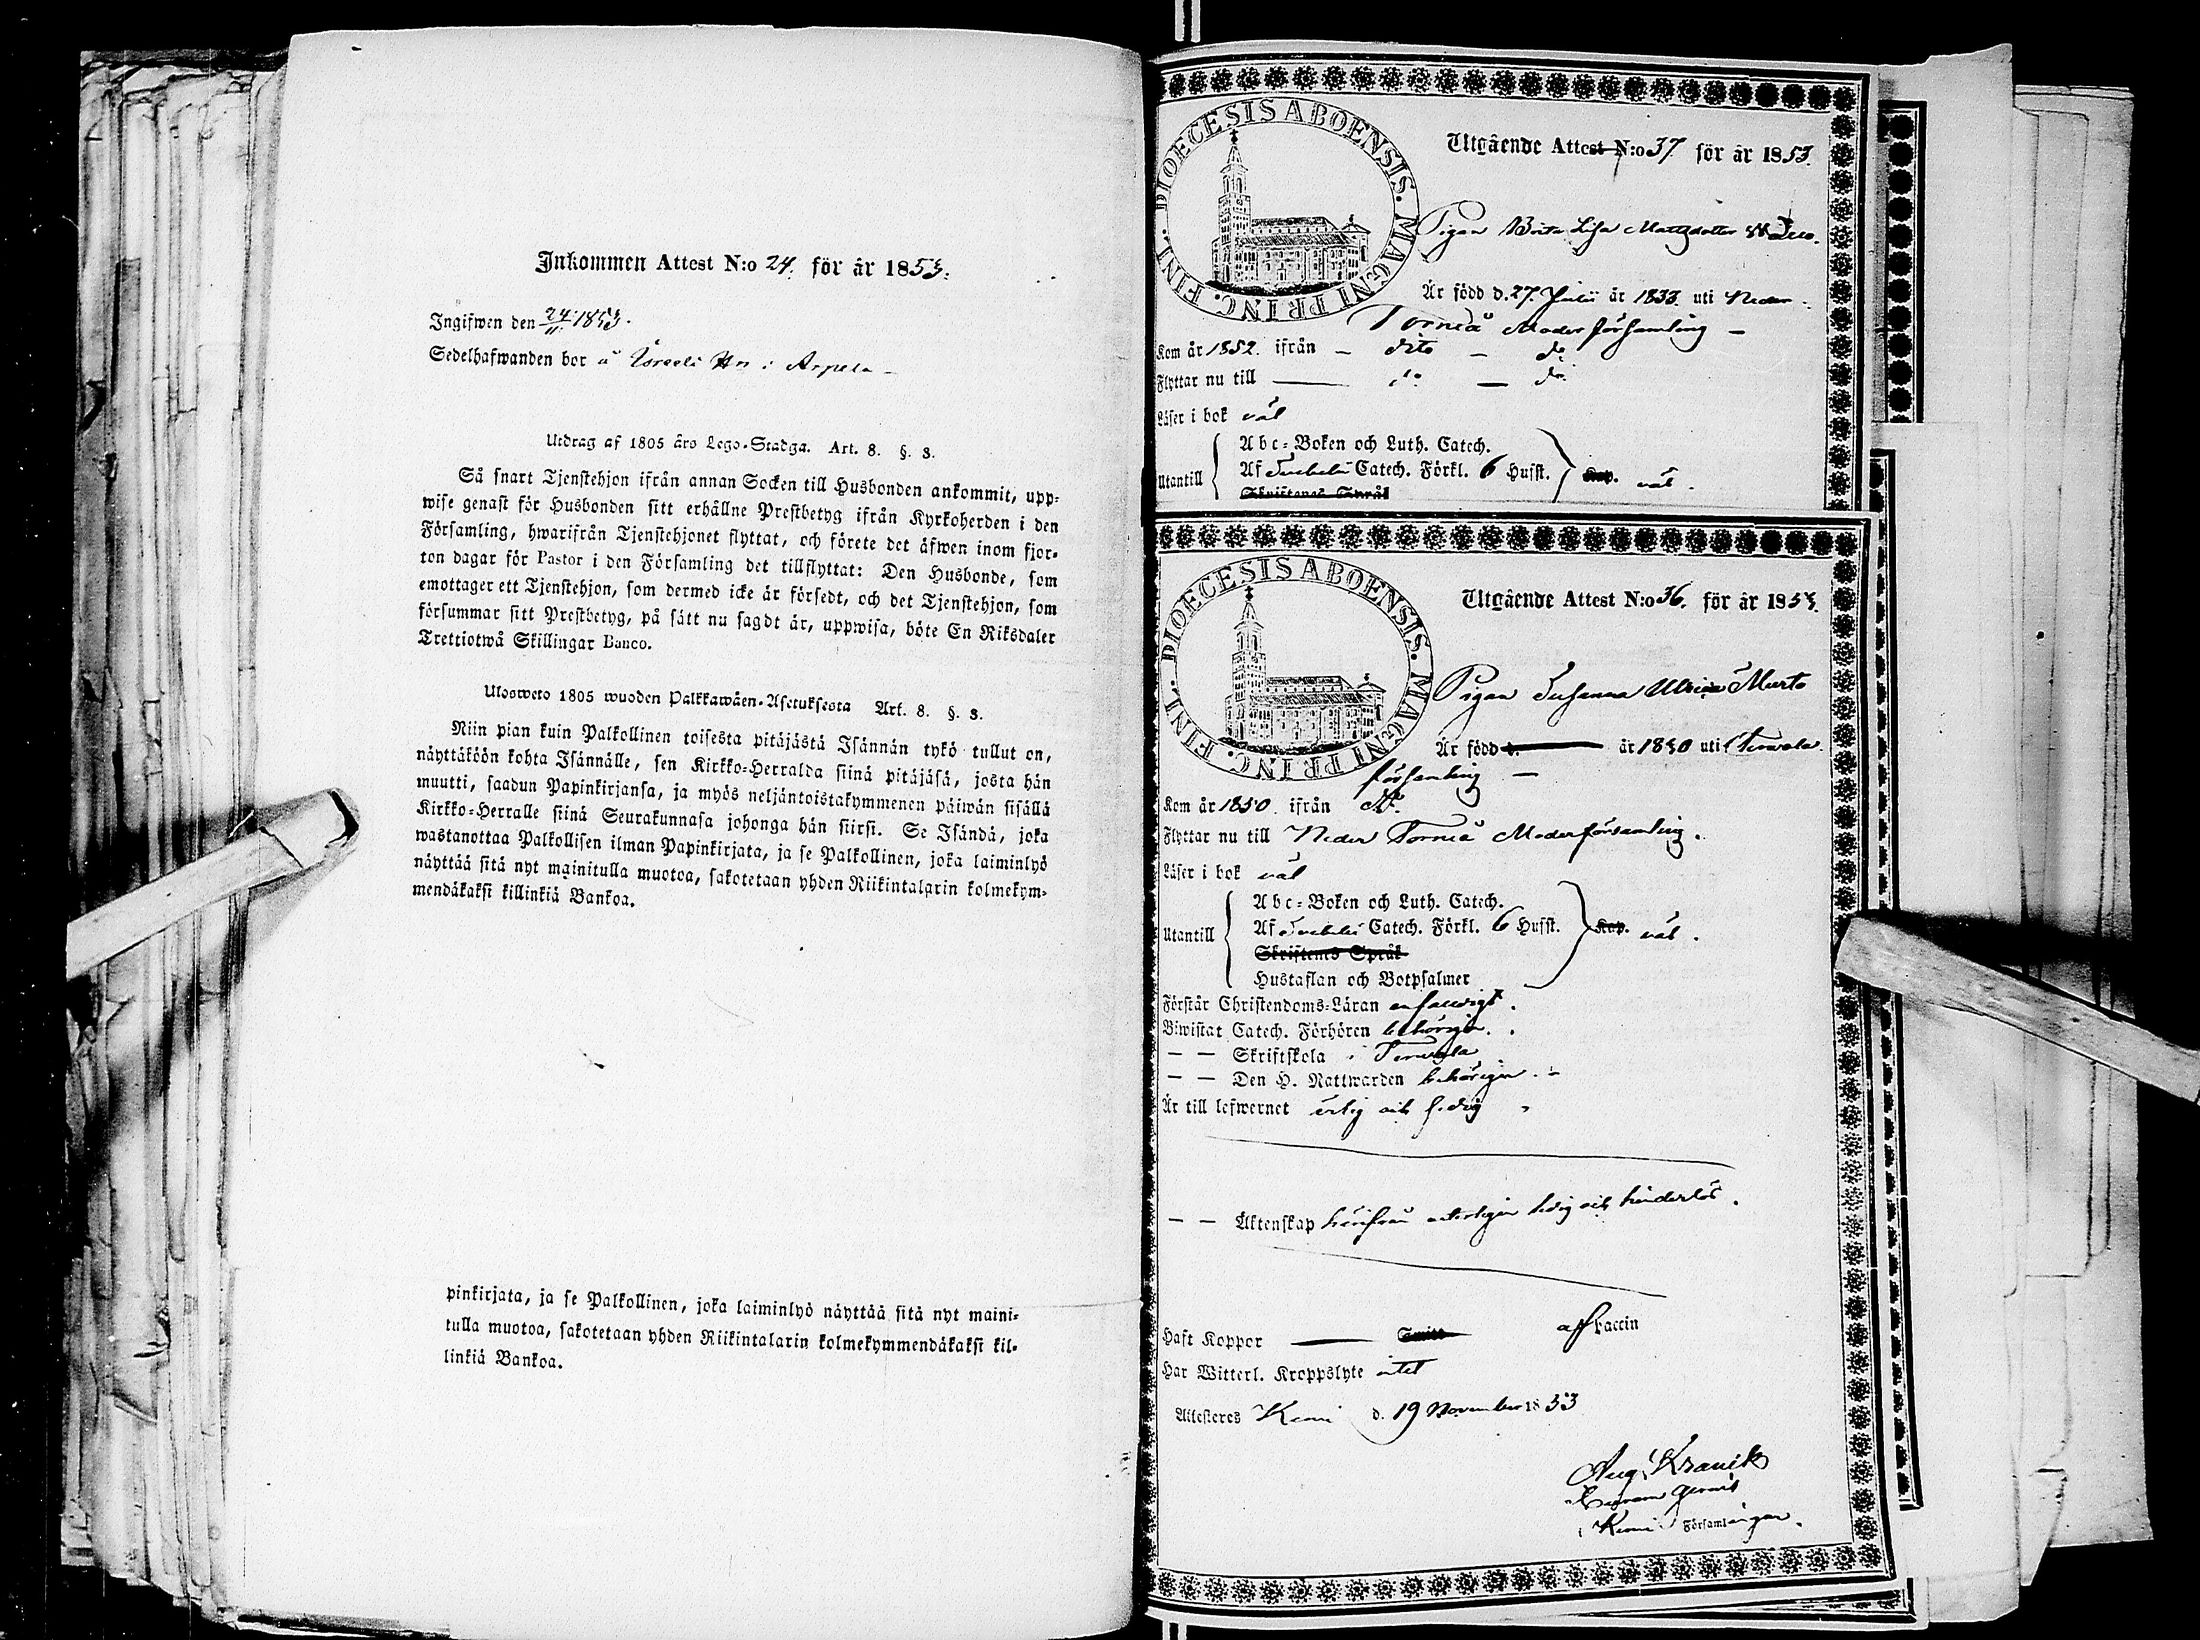 Inkommen Attest N:o 24. för år 1853.
Ingifwen den 24/11 1853.
Sedelhafwanden bor å Isreeli Hn i Arpela
Utdrag af 1805 års Lego-Stadga. Art. 8. §. 3.
Så snart Tjenstehjon ifrån annan Socken till Husbonden ankommit, upp-
wise genast för Husbonden sitt erhållne Prestbetyg ifrån Kyrkoherden i den
Församling, hwarifrån Tjenstehjonet flyttat, och förete det äfwen inom fjor-
ton dagar för Pastor i den Församling det tillflyttat: Den Husbonde, som
emottager ett Tjenstehjon, som dermed icke är försedt, och det Tjenstehjon, som
försummar sitt Prestbetyg, på sätt nu sagdt är, uppwisa, böte En Riksdaler
Trettiotwå Skillingar Banco.
Ulosweto 1805 wuoden Palkkawäen-Asetuksesta Art. 8. §. 3.
Niin pian kuin Palkollinen toisesta pitäjästä Isännän tykö tullut on,
näyttäköön kohta Isännälle, sen Kirkko-Herralda siinä pitäjäsä, josta hän
muutti, saadun Papinkirjansa, ja myös neljäntoistakymmenen päiwän sisällä
Kirkko-Herralle siinä Seurakunnasa johonga hän siirsi. Se Isändä, joka
wastanottaa Palkollisen ilman Papinkirjata, ja se Palkollinen, joka laiminlyö
näyttää sitä nyt mainitulla muotoa, sakotetaan yhden Riikintalarin kolmekym-
mendäkaksi killinkiä Bankoa.
pinkirjata, ja se Palkollinen, joka laiminlyö näyttää sitä nyt maini-
tulla muotoa, sakotetaan yhden Riikintalarin kolmekymmendäkaksi kil-
linkiä Bankoa.
DIOECESIS ABOENSIS. MAGNI PRINC. FINL.
Utgående Attest N:o 37. för år 1853.
Pigan Brita Lisa Mattsdotter
Är född d. 27. Julii år 1833 uti Neder
Torneå Moderförsamling
Kom år 1852. ifrån dito do
Flyttar nu till do do
Läser i bok väl
Utantill
Abc-Boken och Luth. Catech.
Af Svebelii Catech. Förkl. 6 Husst. Kap. väl.
Skriftenes Språk
DIOECESIS ABOENSIS. MAGNI PRINC. FINL.
Utgående Attest N:o 36. för år 1853.
Pigan Susanna Ulrica Murto
Är född d. år 1830 uti Tervola
församling
Kom år 1850. ifrån
Flyttar nu till Neder Torneå Moderförsamling.
Läser i bok väl
Utantill
Abc-Boken och Luth. Catech.
Af Svebelii Catech. Förkl. 6 Husst. Kap. väl.
Skriftenes Språk
Hustaflan och Botpsalmer
Förstår Christendoms-Läran enfaldigt.
Biwistat Catech. Förhören behörigen.
— — Skriftskola i Tervola
— — Den H. Nattwarden behörigen.
Är till lefwernet ärlig och sedig
— — Äktenskap härifrån veterligen ledig och hinderlös.
Haft Koppor Smitt af Vaccin
Har Witterl. Kroppslyte intet
Attesteres Kemi d. 19 November 1853
Aug. Kranck
i Kemi Församlingar.